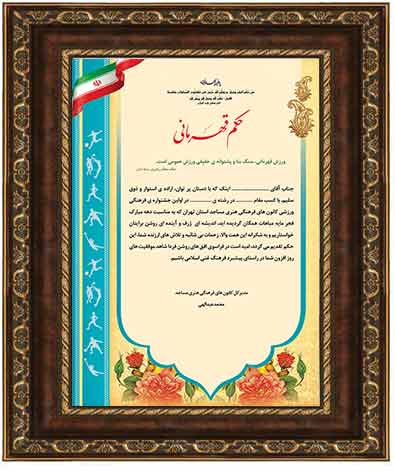 حکم قهرمانی
ورزش قهرمانی، سنگ بنا و پشتوانه ی حقیقی ورزش عمومی است.
جناب آقای .................... اینک که با دستان پر توان، اراده ی استوار و ذوق
سلیم، با کسب مقام .......... در رشته ی .......... در اولین جشنواره ی فرهنگی
ورزشی کانون های فرهنگی هنری مساجد استان تهران که به مناسبت دهه مبارک
فجر مایه مباهات همگان گردیده اید، اندیشه ای ژرف و آینده ای روشن برایتان
خواستاریم و به شکرانه این همت والا، زحمات بی شائبه و تلاش های ارزنده شما، این
حکم تقدیم می گردد، امید است در فراسوی افق های روشن فردا شاهد موفقیت های
روز افزون شما در راستای پیشبرد فرهنگ غنی اسلامی باشیم.
مدیر کل کانون های فرهنگی هنری مساجد
محمد عبدالهی